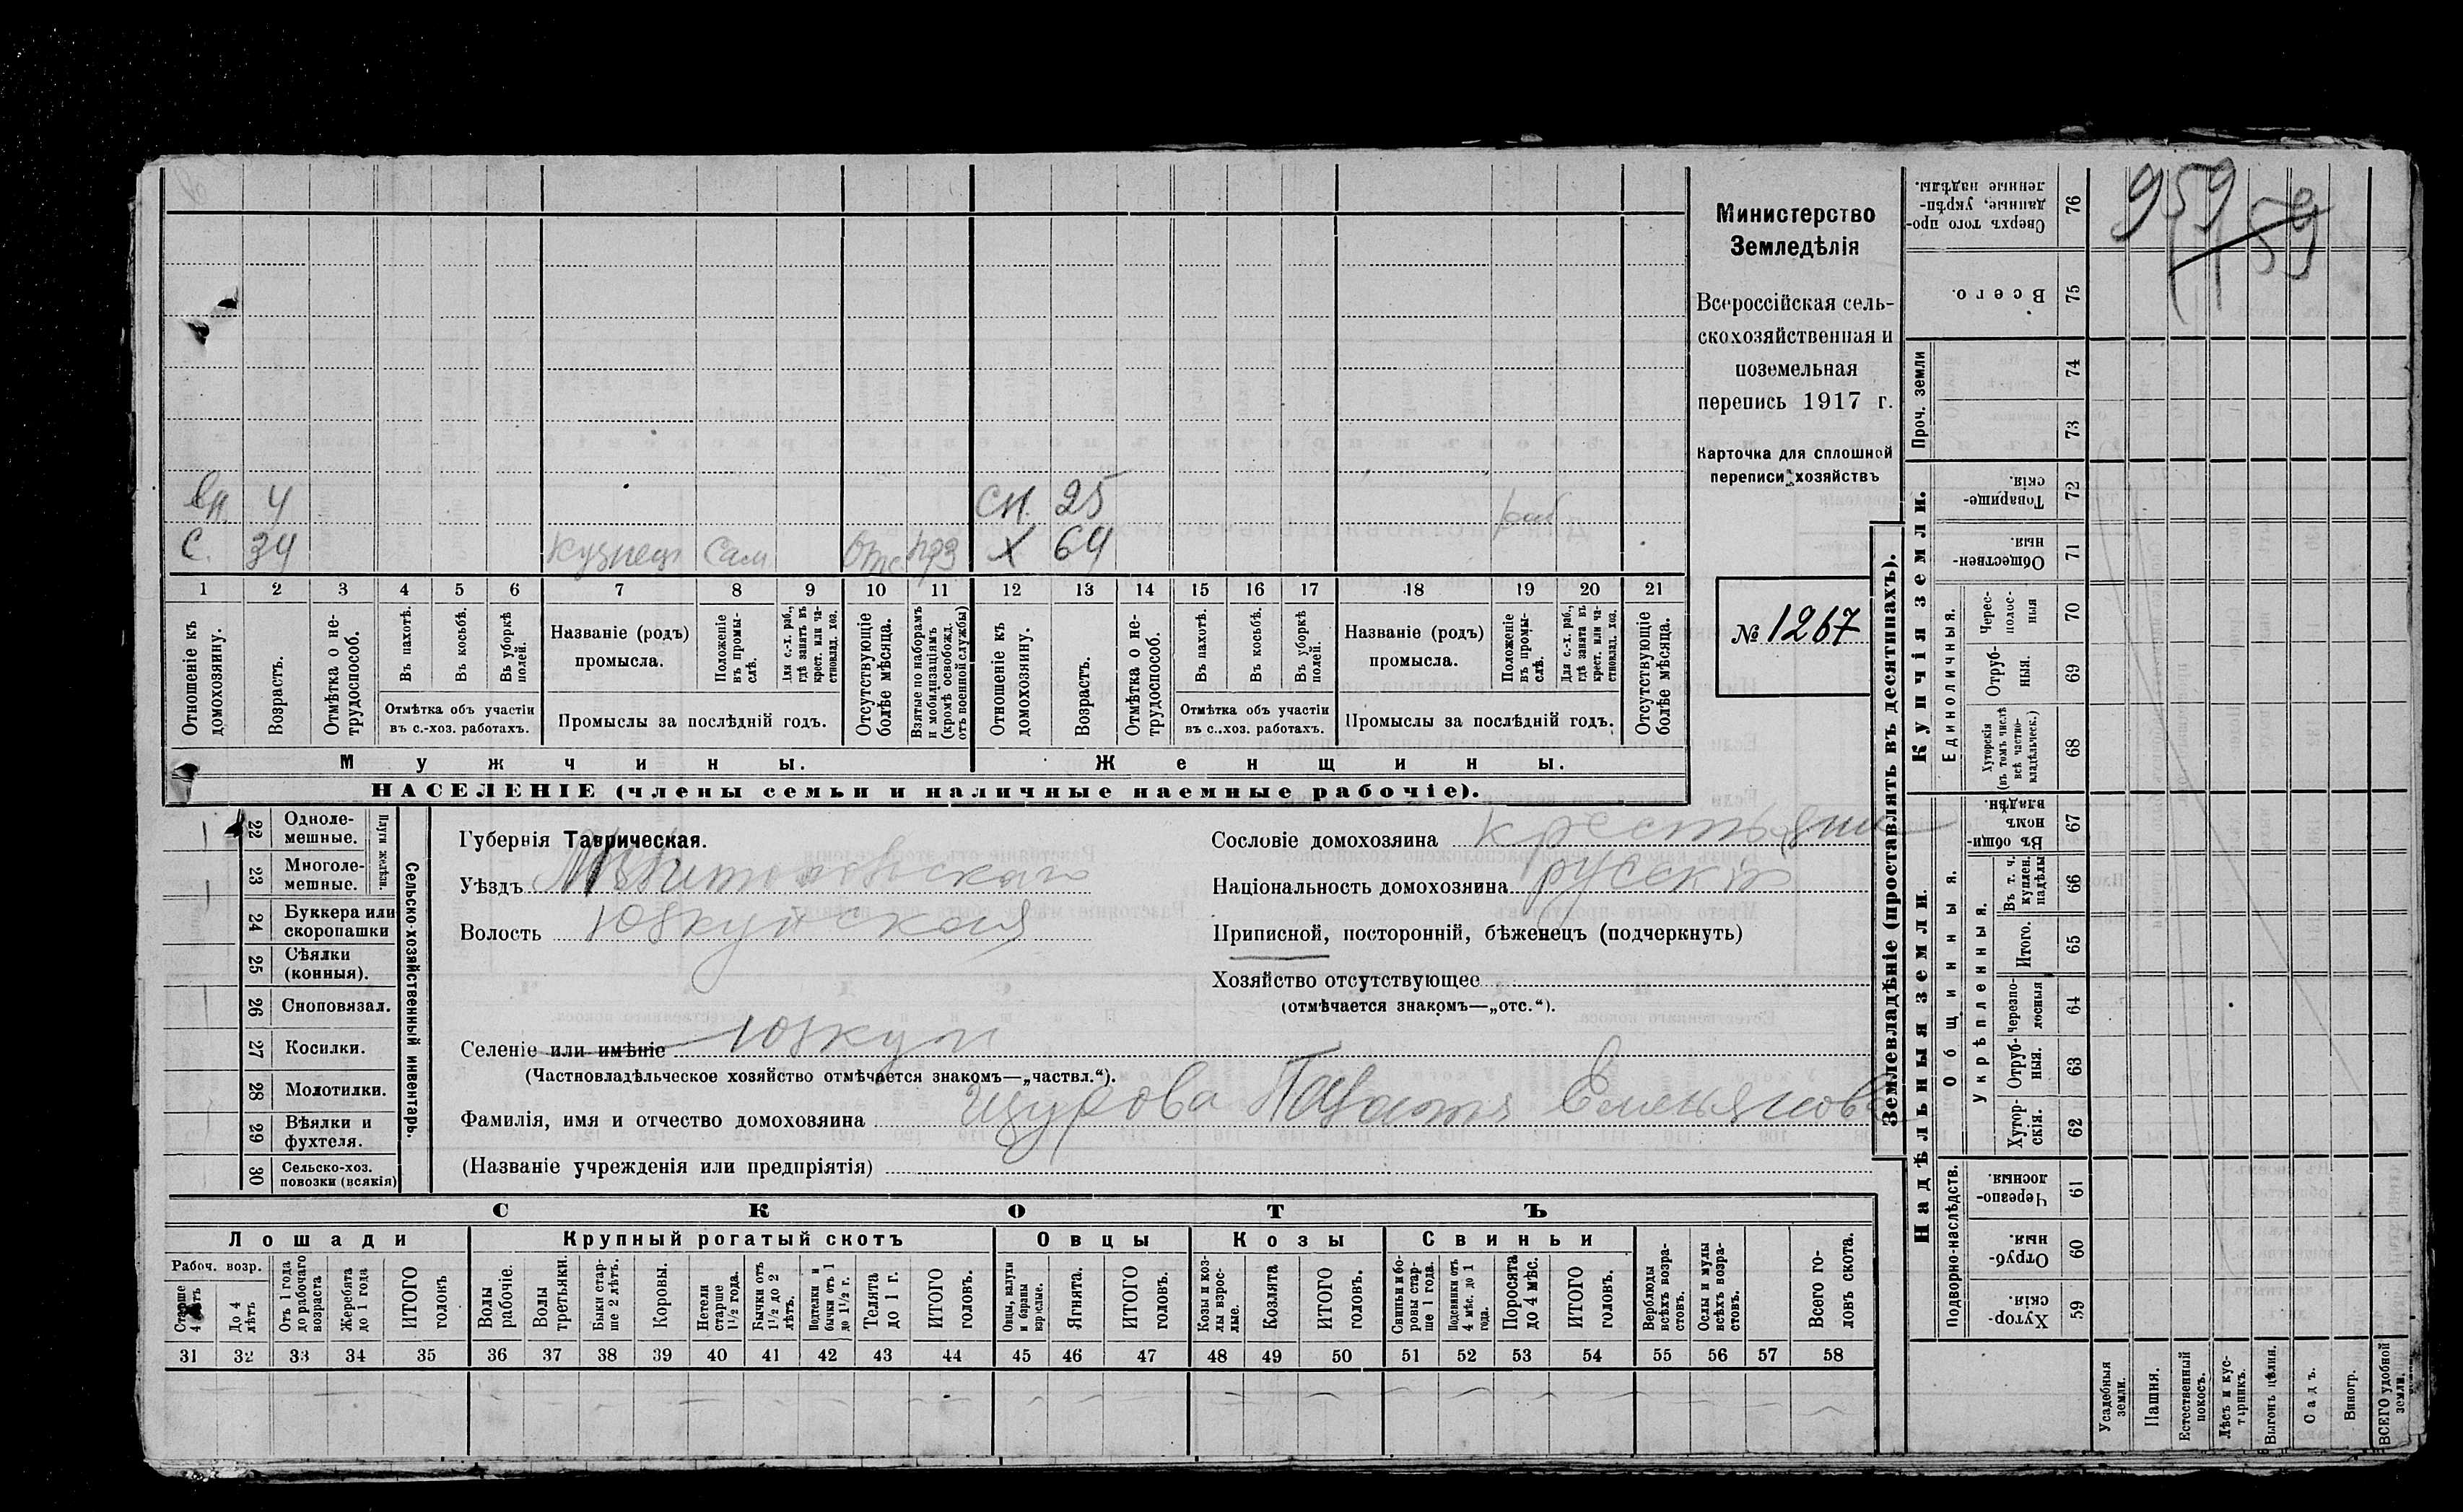 959
59
Министерство
Земледѣлія
Всероссійская сель-
скохозяйственная и
поземельная
перепись 1917 г.
Карточка для сплошной
переписи хозяйствъ
№ 1267
вн. 4
сн. 25
раб
с. 34 кузнец сам отс прз
х 64
1 2 3 4 5 6 7 8 9 10 11 12 13 14 15 16 17 18 19 20 21
Отношеніе къ домохозяину.
Возрастъ.
Отмѣтка о не-трудоспособ.
Въ пахотѣ.
Въ косьбѣ.
Въ уборкѣ полей.
Отмѣтка объ участіи
въ с.-хоз. работахъ.
Названіе (родъ)
промысла.
Положеніе въ промы-слѣ.
Для с.-х. раб., гдѣ занятъ въ крест. или ча-стновлад. хоз.
Промыслы за послѣдній годъ.
Отсутствующіе болѣе мѣсяца.
Взятые по наборамъ и мобилизаціямъ (кромѣ освобожд. отъ военной службы)
Отношеніе къ домохозяину.
Возрастъ.
Отмѣтка о не-трудоспособ.
Въ пахотѣ.
Въ косьбѣ.
Въ уборкѣ полей.
Отмѣтка объ участіи
въ с.-хоз. работахъ.
Названіе (родъ)
промысла.
Положеніе въ промы-слѣ.
Для с.-х. раб., гдѣ занята въ крест. или ча-стновлад. хоз.
Промыслы за послѣдній годъ.
Отсутствующіе болѣе мѣсяца.
Мужчины.
Женщины.
НАСЕЛЕНІЕ (члены семьи и наличные наемные рабочіе).
22 Одноле-мешные.
23 Многоле-мешные.
Плуги желѣзн.
24 Буккера или скоропашки
25 Сѣялки (конныя).
26 Сноповязал.
27 Косилки.
28 Молотилки.
29 Вѣялки и фухтеля.
30 Сельско-хоз. повозки (всякія)
Сельско-хозяйственный инвентарь.
Губернія Таврическая.
Уѣздъ Мелитопольскаго
Волость Юзкуйская
Селеніе или имѣніе Юзкуи
(Частновладѣльческое хозяйство отмѣчается знакомъ—„частвл.“).
Фамилія, имя и отчество домохозяина Щурова Емельянова
(Названіе учрежденія или предпріятія)
Сословіе домохозяина крестьянин
Національность домохозяина русскій
Приписной, посторонній, бѣженецъ (подчеркнуть)
Хозяйство отсутствующее
(отмѣчается знакомъ—„отс.“).
СКОТЪ
Лошади
Крупный рогатый скотъ
Овцы
Козы
Свиньи
Рабоч. возр.
Старше 4 лѣтъ
До 4 лѣтъ
Отъ 1 года до рабочаго возраста
Жеребята до 1 года
ИТОГО головъ
Волы рабочіе.
Волы третьяки.
Быки стар-ше 2 лѣтъ.
Коровы.
Нетели старше 1½ года.
Бычки отъ 1½ до 2 лѣтъ.
Подтелки и бычки отъ 1 до 1½ г.
Телята до 1 г.
ИТОГО головъ.
Овцы, валухи и бараны взрослые.
Ягнята.
ИТОГО головъ.
Козы и коз-лы взрос-лые.
Козлята
ИТОГО головъ.
Свиньи и бо-ровы стар-ше 1 года.
Подсвинки отъ 4 мѣс. до 1 года.
Поросята до 4 мѣс.
ИТОГО головъ.
Верблюды всѣхъ возра-стовъ.
Ослы и мулы всѣхъ возра-стовъ.
Всего го-ловъ скота.
31 32 33 34 35 36 37 38 39 40 41 42 43 44 45 46 47 48 49 50 51 52 53 54 55 56 57 58
Землевладѣніе (проставлять въ десятинахъ).
Купчія земли.
Надѣльныя земли.
Сверхъ того про-данные, укрѣп-ленные надѣлы. 76
Всего. 75
Проч. земли
74
73
Товарище-скія. 72
Обществен-ныя. 71
Единоличныя.
Черес-полос-ныя 70
Отруб-ныя. 69
Хуторскія (въ томъ числѣ всѣ частно-владѣльческ.) 68
Общинныя.
Въ общи-номъ владѣн. 67
Укрѣпленныя.
Въ т. ч. куплен. надѣлы 66
Итого. 65
Черезпо-лосныя 64
Отруб-ныя. 63
Хутор-скія. 62
Подворно-наслѣдств.
Черезпо-лосныя. 61
Отруб-ныя. 60
Хутор-скія. 59
Усадебныя земли.
Пашня.
Естественный покосъ.
Лѣсъ и кус-тарникъ.
Выгонъ цѣлин.
Садъ.
Виногр.
ВСЕГО удобной земли.